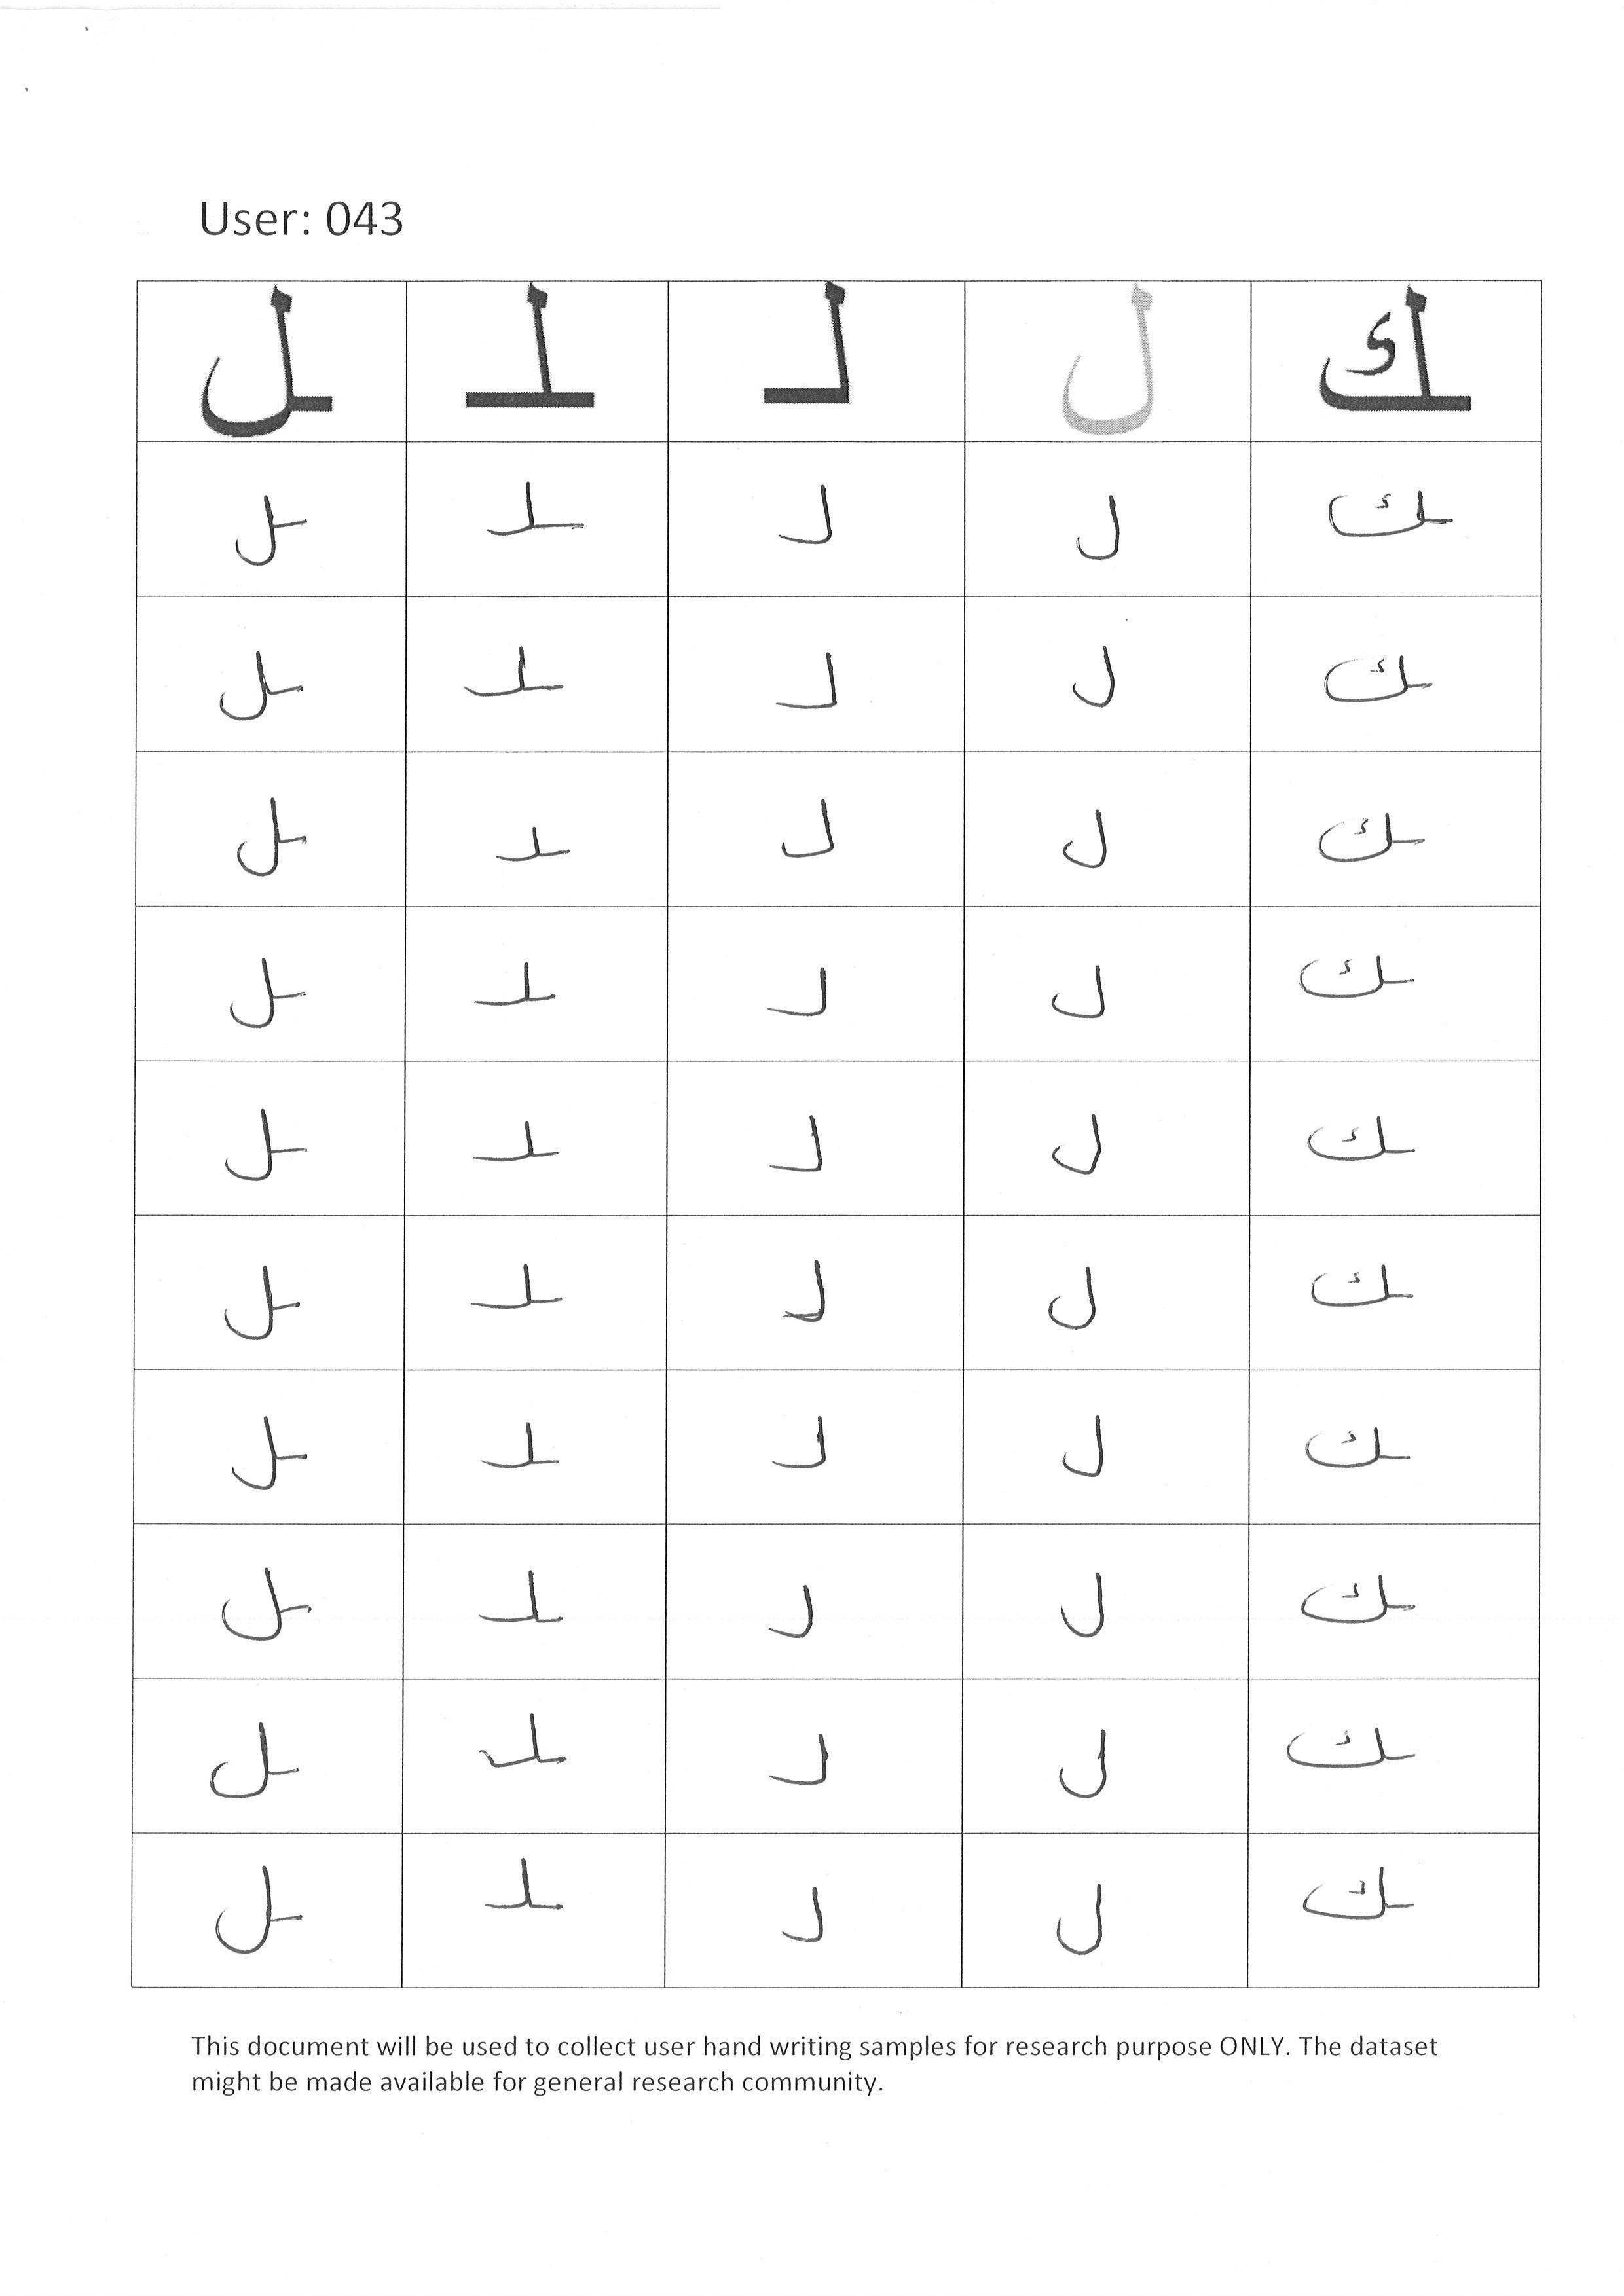 User: 043
ك ل لـ ـلـ ـل
ـك ل لـ ـلـ ـل
ـك ل لـ ـلـ ـل
ـك ل لـ ـلـ ـل
ـك ل لـ ـلـ ـل
ـك ل لـ ـلـ ـل
ـك ل لـ ـلـ ـل
ـك ل لـ ـلـ ـل
ـك ل لـ ـلـ ـل
ـك ل لـ ـلـ ـل
ـك ل لـ ـلـ ـل
This document will be used to collect user hand writing samples for research purpose ONLY. The dataset
might be made available for general research community.